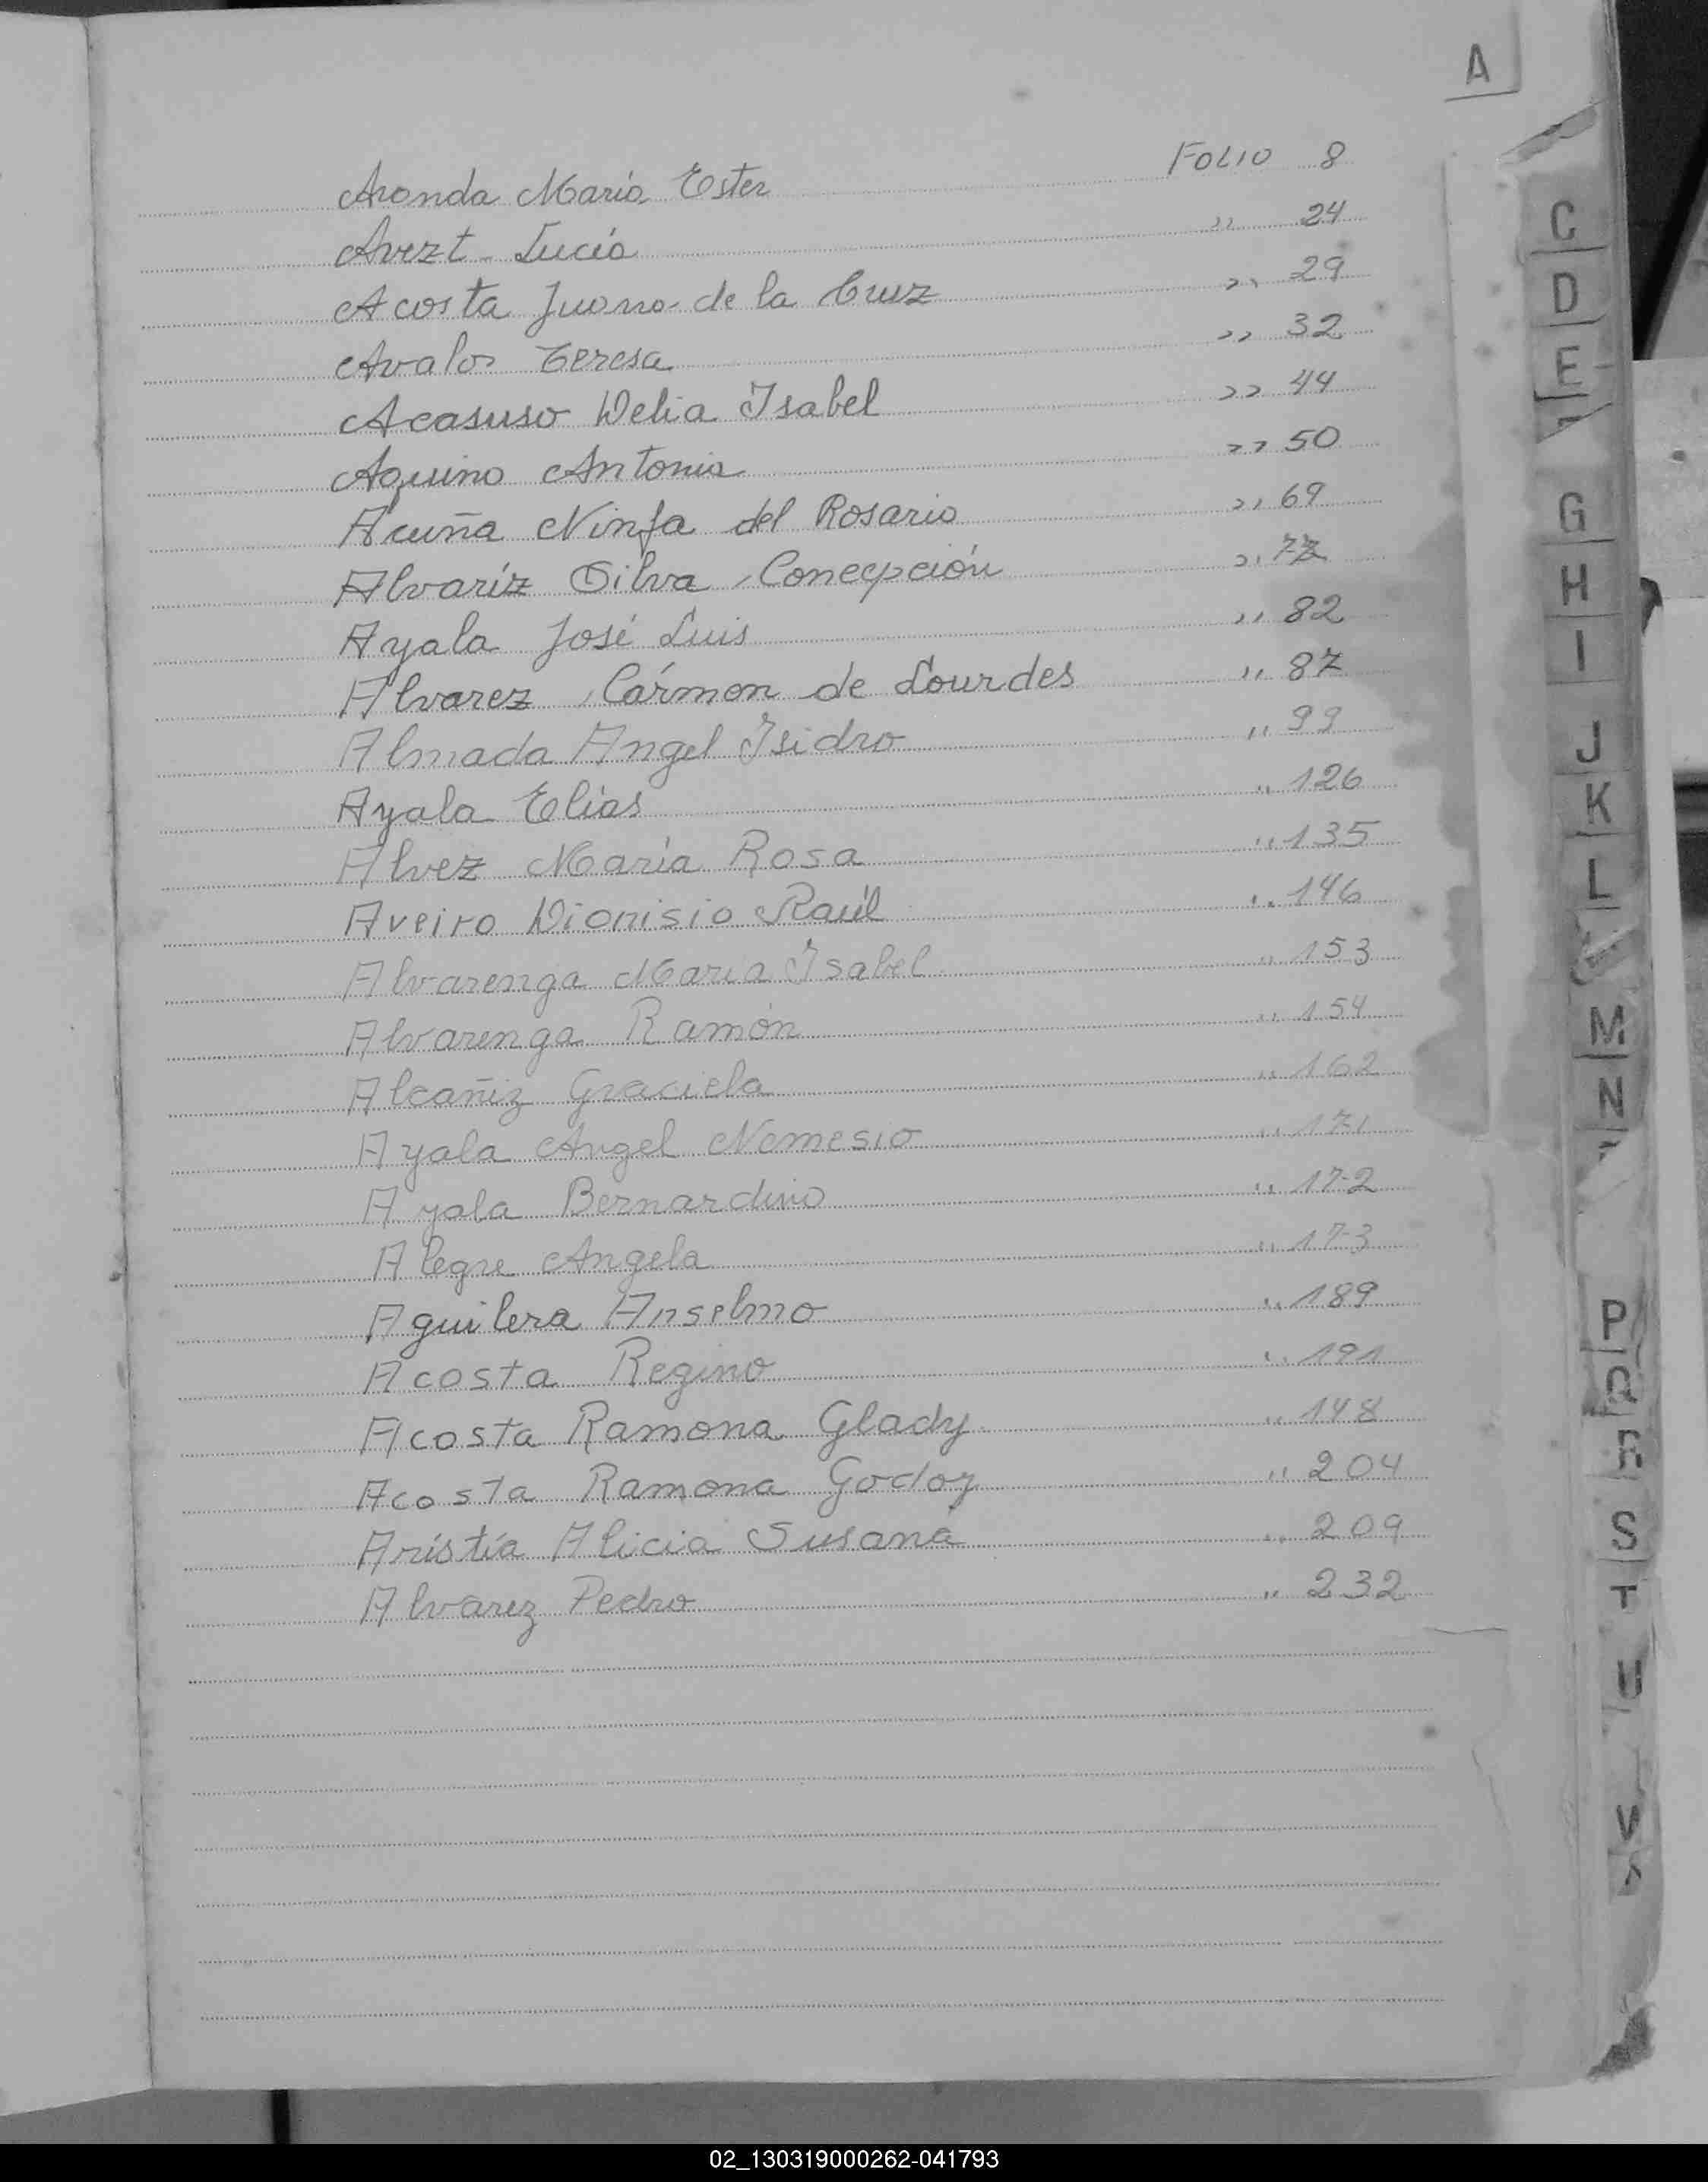 A
Aranda María Ester FOLIO 8
Avezt Lucía ,, 24
Acosta Juana de la Cruz ,, 29
Avalos Teresa ,, 32
Acasuso Delia Isabel ,, 44
Aquino Antonia ,, 50
Acuña Ninfa del Rosario ,, 69
Alvaríz Silva Concepción ,, 77
Ayala José Luis ,, 82
Alvarez Cármen de Lourdes ,, 87
Almada Angel Isidro ,, 99
Ayala Elias ,, 126
Alvez María Rosa ,, 135
Aveiro Dionisio Raúl ,, 146
Alvarenga María Isabel ,, 153
Alvarenga Ramón ,, 154
Alcañiz Graciela ,, 162
Ayala Angel Nemesio ,, 171
Ayala Bernardino ,, 172
Alegre Angela ,, 173
Aguilera Anselmo ,, 189
Acosta Regino ,, 191
Acosta Ramona Glady ,, 148
Acosta Ramona Godoy ,, 204
Aristía Alicia Susana ,, 209
Alvarez Pedro ,, 232
C
D
E
G
H
I
J
K
L
M
N
P
Q
R
S
T
U
V
02_130319000262-041793